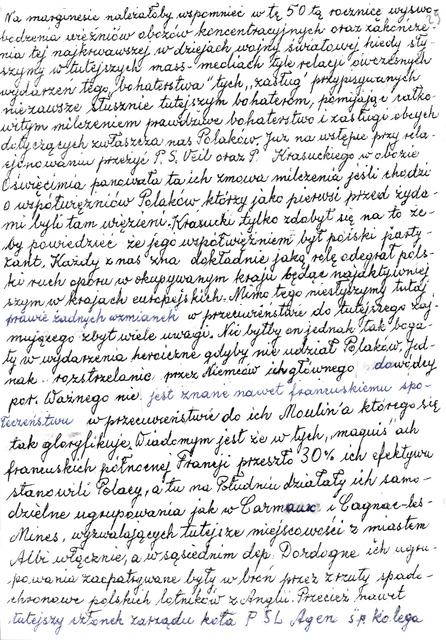 Na marginesie należałoby wspomnieć w tę 50tą rocznicę wyswo-
23
bodzenia więźniów obozów koncentracyjnych oraz zakończe-
nia tej najkrwawszej w dziejach wojny światowej kiedy sły-
szymy w tutejszych mass-mediach tyle relacji ówczesnych
wydarzeń tego „bohaterstwa" tych „zasług" przypisywanych
nie zawsze słusznie tutejszym bohaterom, pomijając całko-
witym milczeniem prawdziwe bohaterstwo i zasługi obcych
dotyczących zwłaszcza nas Polaków. Już na wstępie przy rela-
cjonowaniu przeżyć P. S. Veil oraz P. Krasuckiego w obozie
Oświęcimia panowała ta ich zmowa milczenia jeśli chodzi
o współwięźniów Polaków którzy jako pierwsi przed żyda-
mi byli tam więzieni. Krasucki tylko zdobył się na to że-
by powiedzieć że jego współwięźniem był polski party-
zant. Każdy z nas zna dokładnie jaką rolę odegrał pols-
ki ruch oporu w okupywanym kraju będąc najaktywniej
szym w krajach europejskich. Mimo tego niesłyszymy tutaj
prawie żadnych wzmianek w przeciweństwie do tutejszego zaj-
mującego zbyt wiele uwagi. Nie byłby on jednak tak boga-
ty w wydarzenia heroiczne gdyby nie udział Polaków. Jed-
nak rozstrzelanie przez Niemców ich głównego dowódcy
por. Ważnego nie jest znane nawet francuskiemu spo-
łeczeństwu w przeciweństwie do ich Moulin'a którego się
tak gloryfikuje. Wiadomym jest że w tych „maquis'ach
francuskich północnej Francji przeszło 30% ich efektywu
stanowili Polacy, a tu na Południu działały ich samo-
dzielne ugrupowania jak w Carmaux i Cagnac-les-
Mines, wyzwalających tutejsze miejscowości z miastem
Albi włącznie, a w sąsiednim dep. Dordogne ich ugru-
powania zaopatrywane były w broń przez zrzuty spado-
chronowe polskich lotników z Anglii. Przecież nawet
tutejszy członek zarządu koła PSL Agen śp kolega